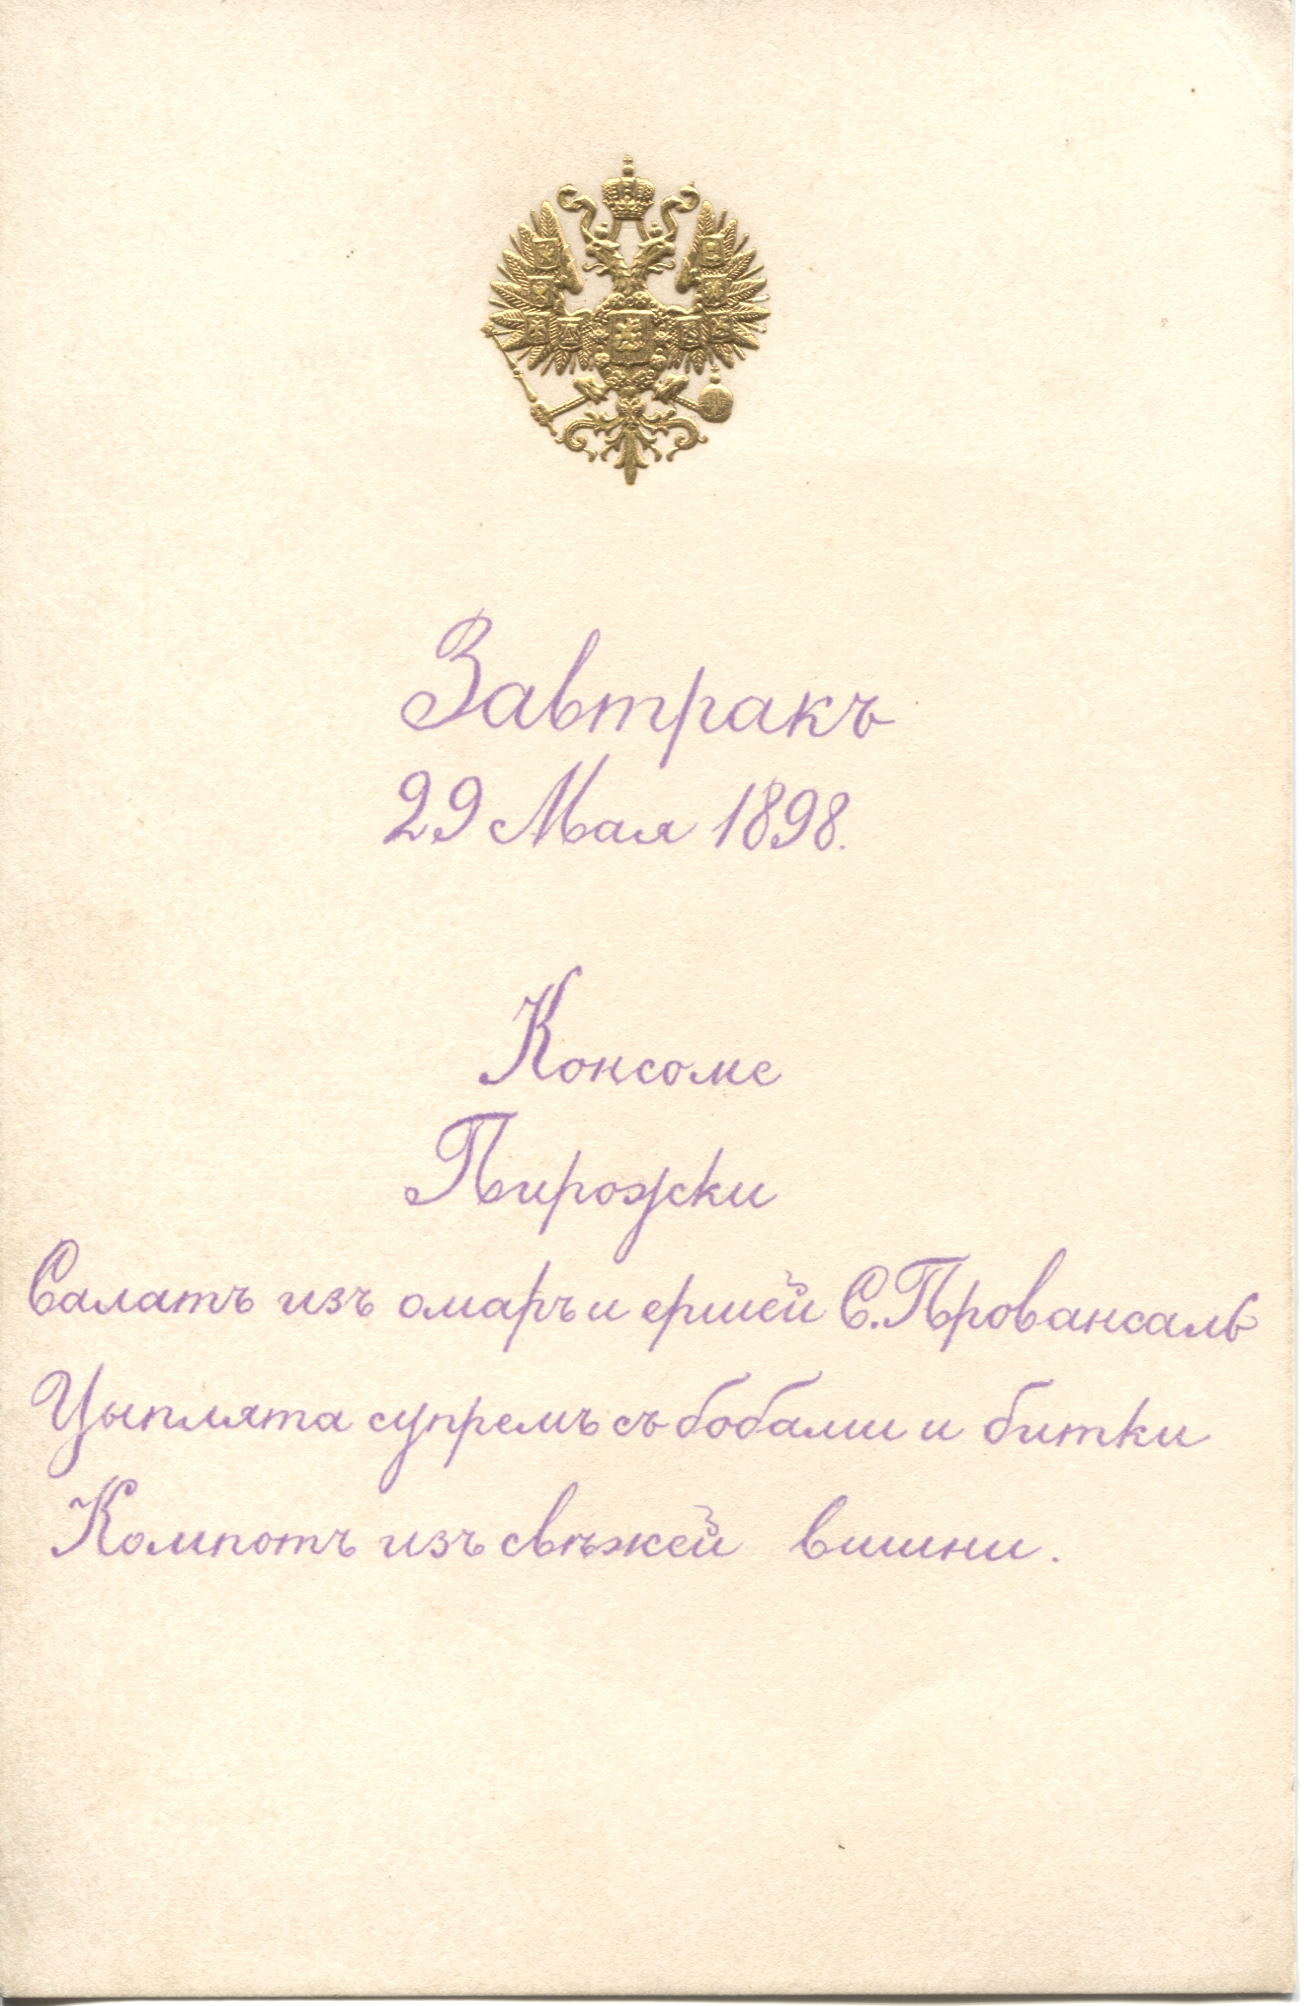 Завтракъ
29 Мая 1898.
Консоме
Пирожки
Салатъ изъ омаръ и ершей С. Провансаль
Цыплята супремъ съ бобами и битки
Компотъ изъ свѣжей вишни.